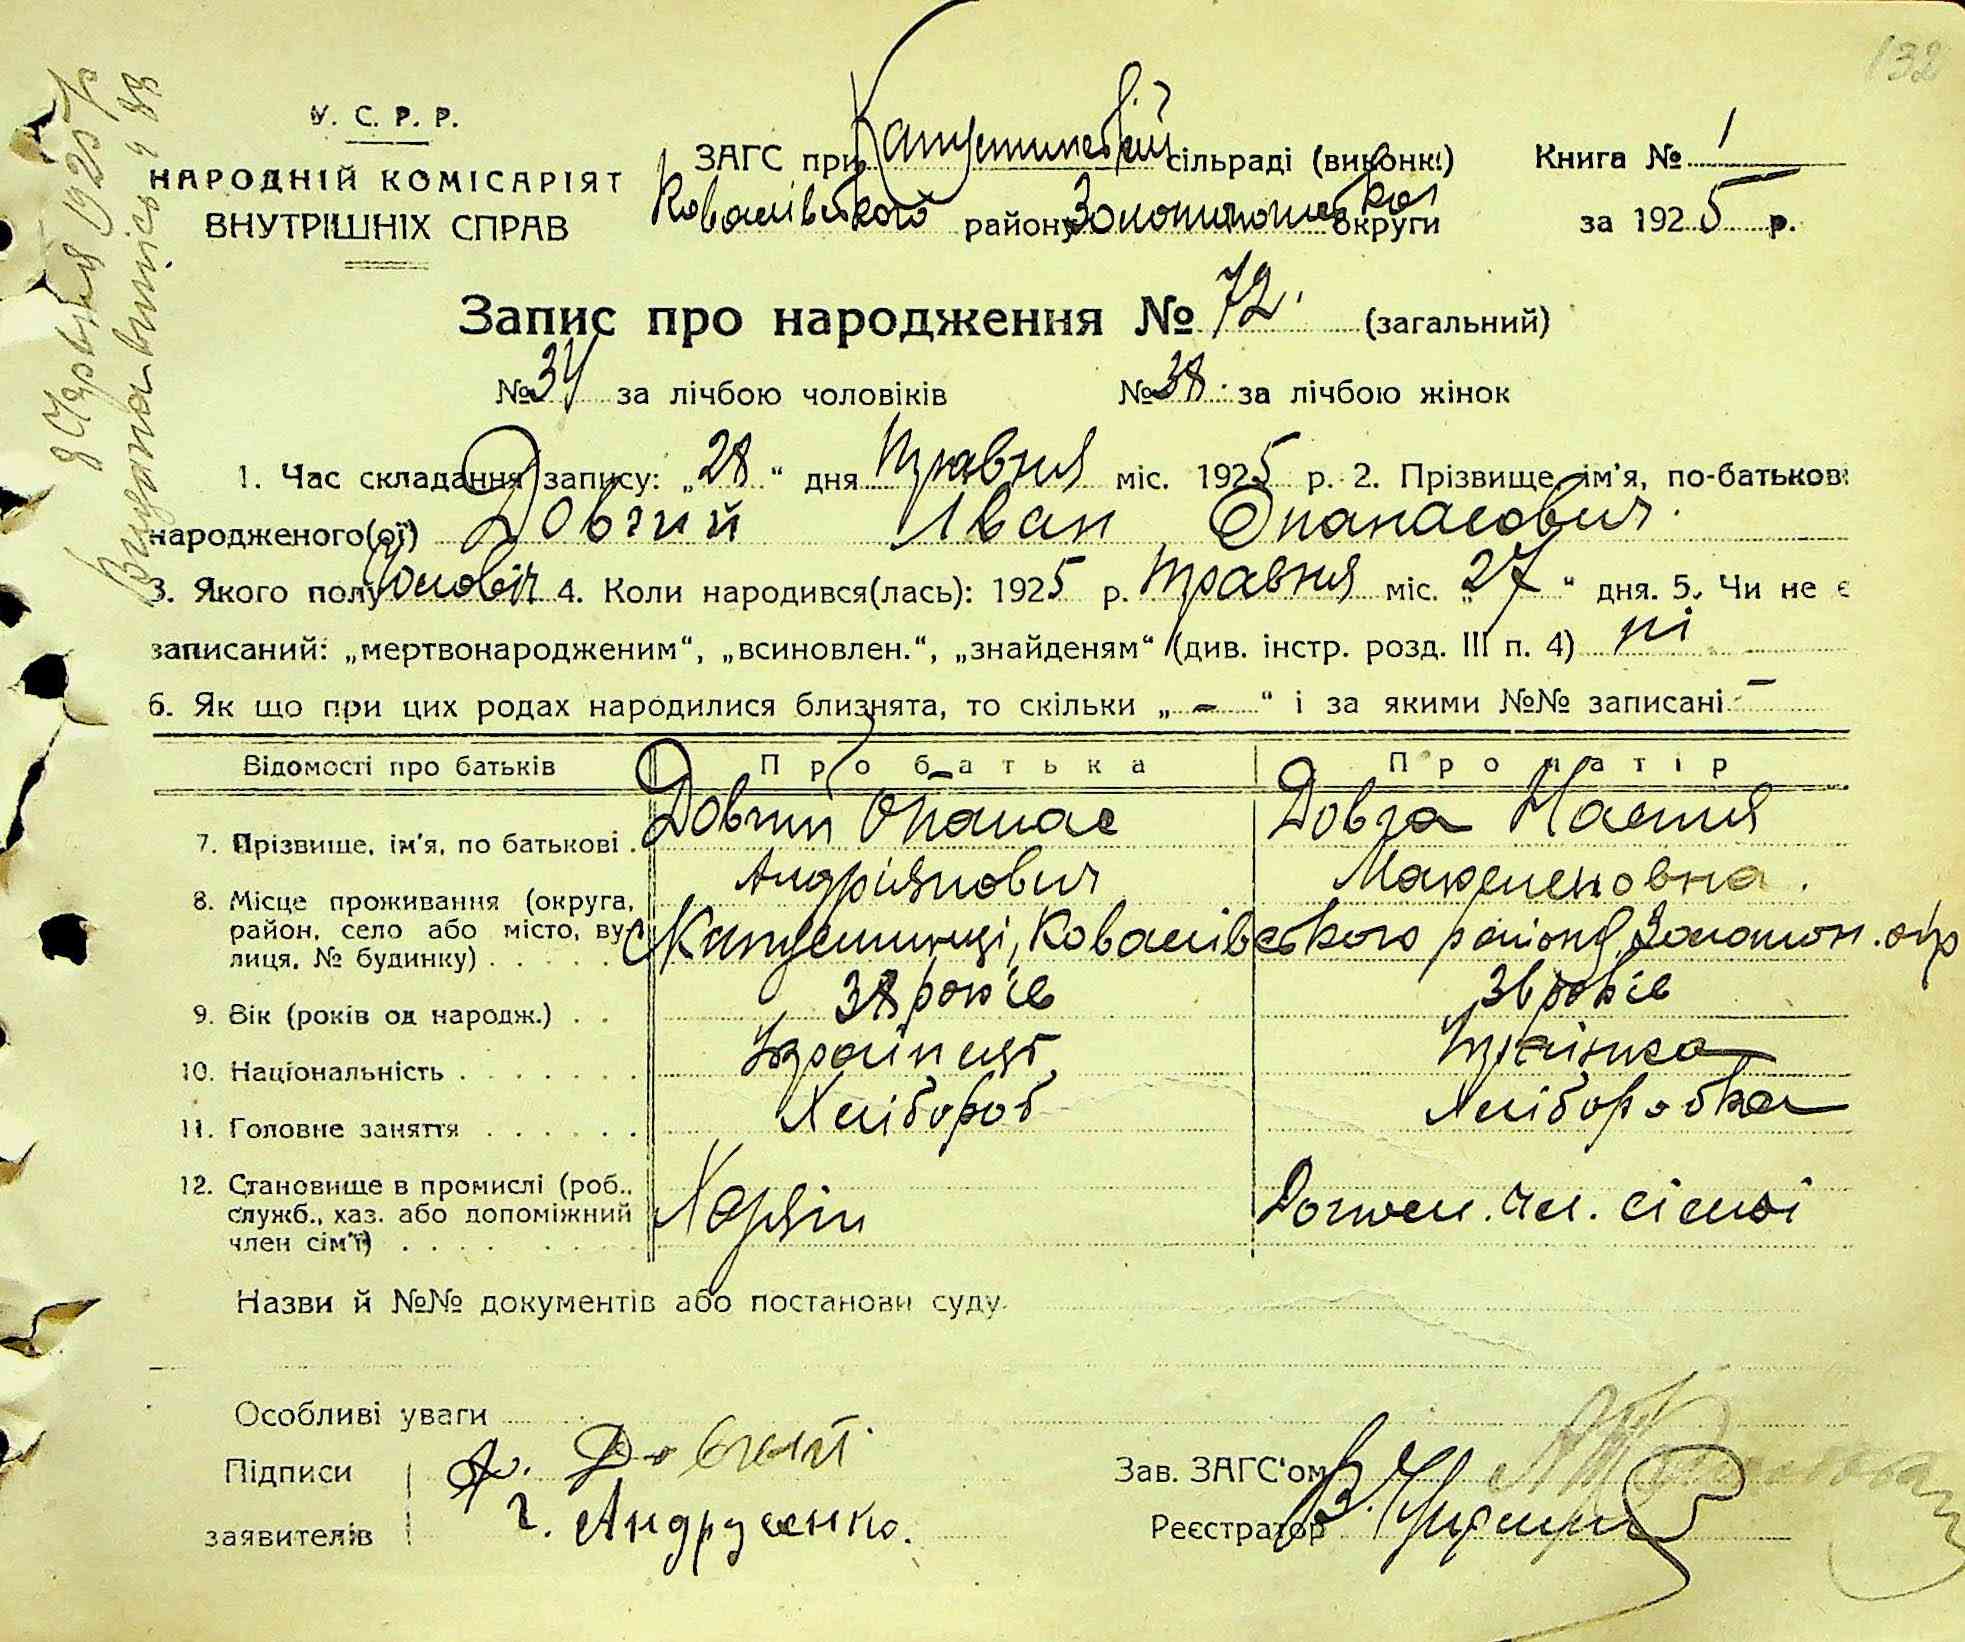 132
8 Червня 1925 р
Видана виписъ ч 88
У. С. Р. Р.
НАРОДНІЙ КОМІСАРІЯТ
ВНУТРІШНІХ СПРАВ
ЗАГС при Капустинській сільраді (виконк.)
Ковалівського району Золотоношської округи
Книга № 1
за 1925 р.
Запис про народження № 72 (загальний)
№ 34 за лічбою чоловіків № 38 за лічбою жінок
1. Час складання запису: „28“ дня Травня міс. 1925 р. 2. Прізвище, ім'я, по-батькові
народженого(ої) Довгий Іван Опанасович.
3. Якого полу Чоловіч 4. Коли народився(лась): 1925 р. Травня міс. „27“ дня. 5. Чи не є
записаний: „мертвонародженим“, „всиновлен.“, „знайденям“ (див. інстр. розд. III п. 4) ні
6. Як що при цих родах народилися близнята, то скільки „-“ і за якими №№ записані -
Відомості про батьків Про батька Про матір
7. Прізвище, ім'я, по батькові . Довгий Опанас Андріянович Довга Настя
8. Місце проживання (округа, район, село або місто, вулиця, № будинку) . . . . . с Капустинці, Ковалівського району, Золотон. окр
9. Вік (років од народж.) . . 38 років 36 років
10. Національність . . . . . . . Українець Українка
11. Головне заняття . . . . . . Хлібороб Хліборобка
12. Становище в промислі (роб., служб., хаз. або допоміжний член сім'ї) . . . . Хазяїн Допом. чл. сімʼї
Назви й №№ документів або постанови суду
Особливі уваги
Підписи
заявителів
А. Довгий
Г. Андрущенко.
Зав. ЗАГС'ом
Реєстратор В.